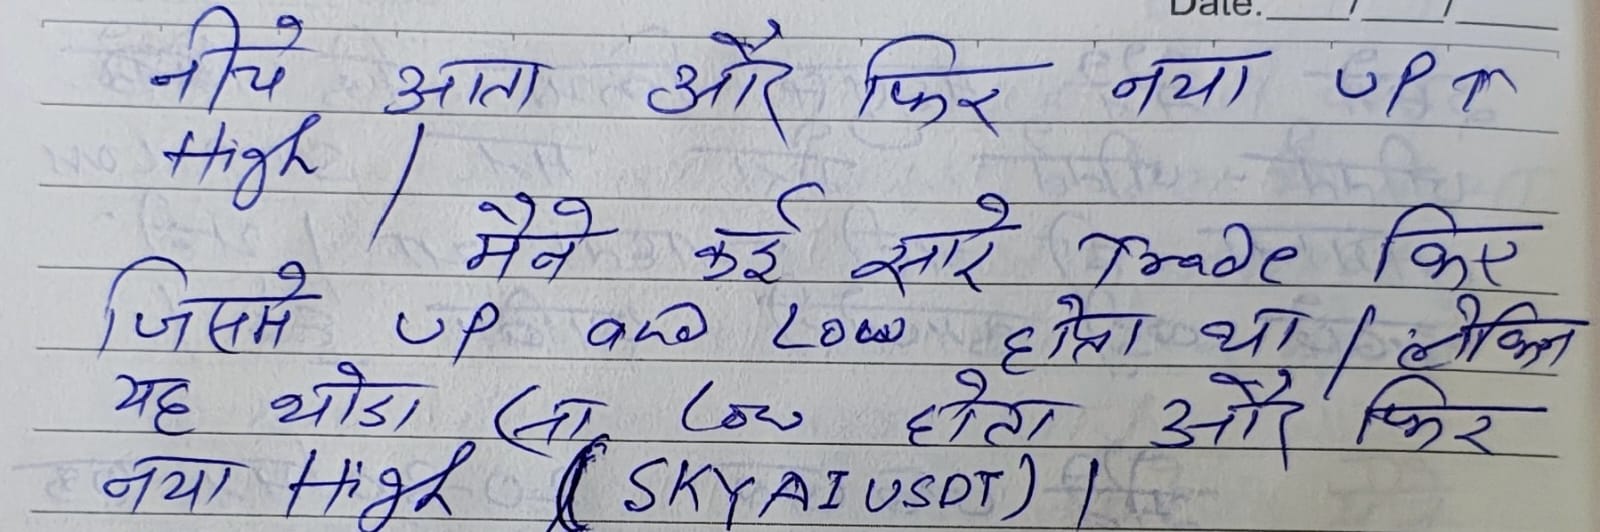 Date: ___/___/___
नीचे आता और फिर नया UP ↑
High |
मैने कई सारे Trade किए
जिसमे UP and Low होता था | लेकिन
यह थोडा सा Low होता और फिर
नया High (SKYAIUSDT) |